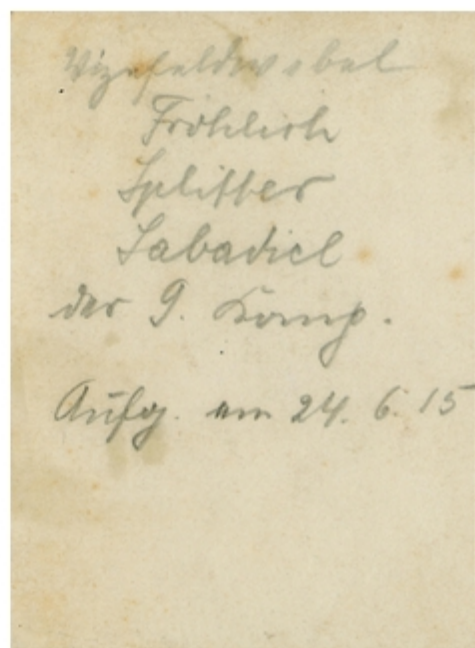 Vizefeldwebel
Fröhlich
Splitber
Sabadiel
der 9. Komp.
Aufg. am 24. 6. 15